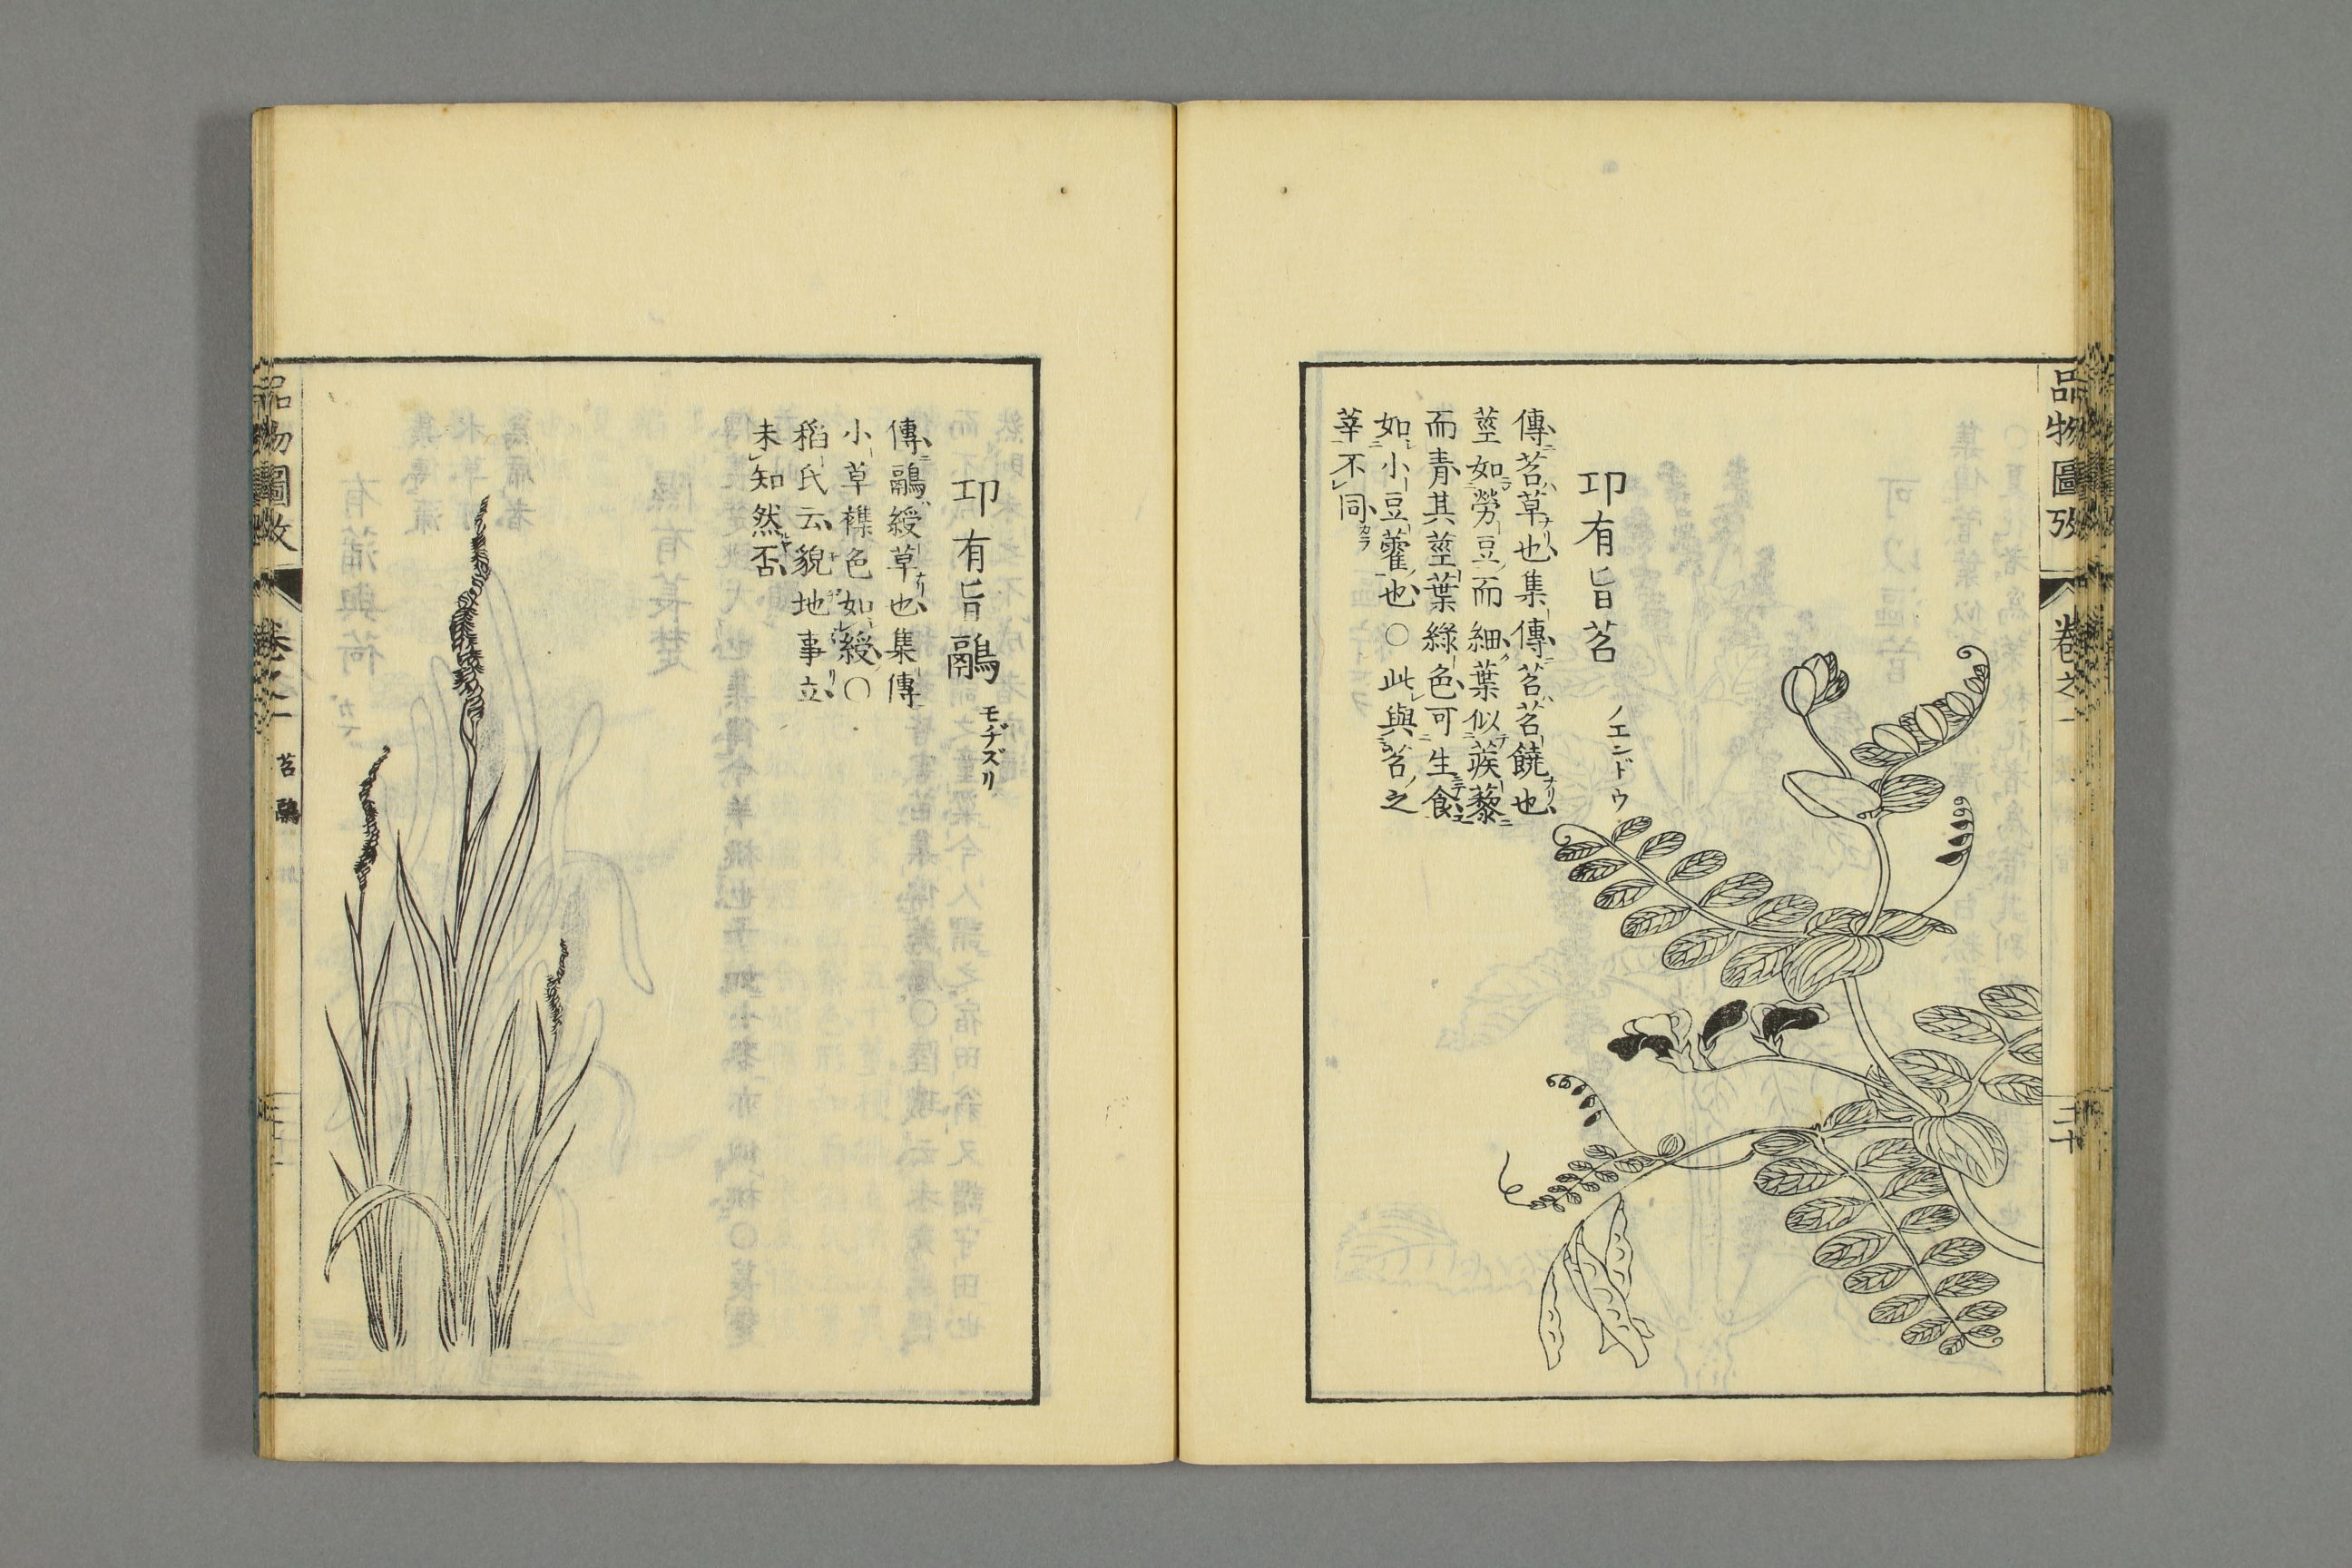 品物圖攷
卷之一
二十
卭有旨苕
ノエンドウ
傳苕草也集傳苕苕饒也
莖如勞豆而細葉似蒺藜
而青其莖葉綠色可生食
如小豆藿也○此與苕之
華不同
卭有旨鷊
モヂズリ
傳鷊綬草也集傳
小草襍色如綬○
稻氏云貌地事立
未知然否
品物圖攷
卷之一
苕
鷊